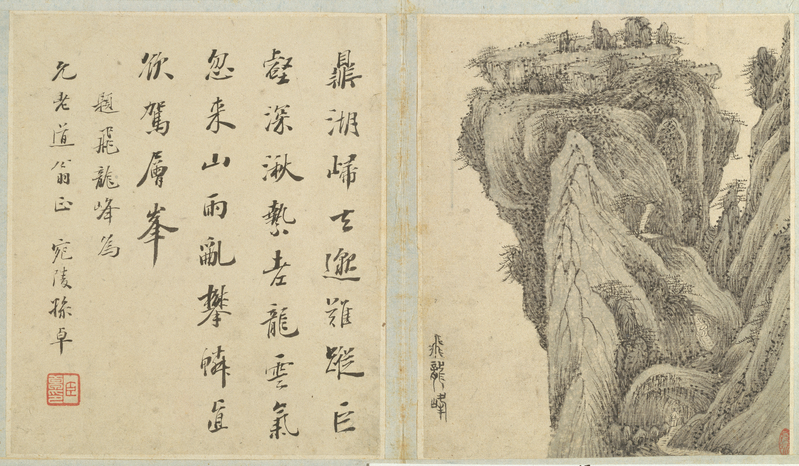 飛龍峰
鼎湖歸去邈難蹤巨
壑深湫蟄老龍雲氣
忽来山雨亂攀鱗直
欲駕層峯
題飛龍峰為
允老道翁正 宛陵孫卓